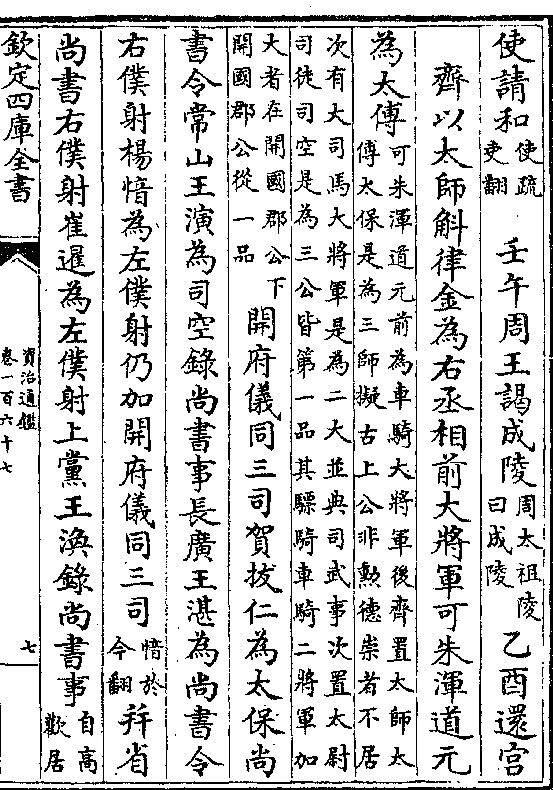 使請和使疏吏翻 壬午周王謁成陵周太祖陵曰成陵乙酉還宫
齊以太師斛律金為右丞相前大將軍可朱渾道元
為太傅可朱渾道元前為車騎大將軍後齊置太師太傅太保是為三師擬古上公非勲德崇者不居
次有大司馬大將軍是為二大並典司武事次置太尉司徒司空是為三公皆第一品其驃騎車騎二將軍加
大者在開國郡公下開國郡公從一品開府儀同三司賀拔仁為太保尚
書令常山王演為司空錄尚書事長廣王湛為尚書令
右僕射楊愔為左僕射仍加開府儀同三司愔於今翻幷省
尚書右僕射崔暹為左僕射上黨王渙錄尚書事自高歡居
欽定四庫全書
資治通鑑
卷一百六十七
七